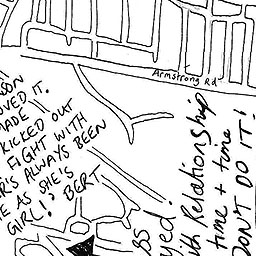 Armstrong Rd
OVED IT.
MADE
KICKED OUT
FIGHT WITH
ALWAYS BEEN
AS SHE'S
GIRL! BERT
Relationship
time + time
DON'T DO IT!